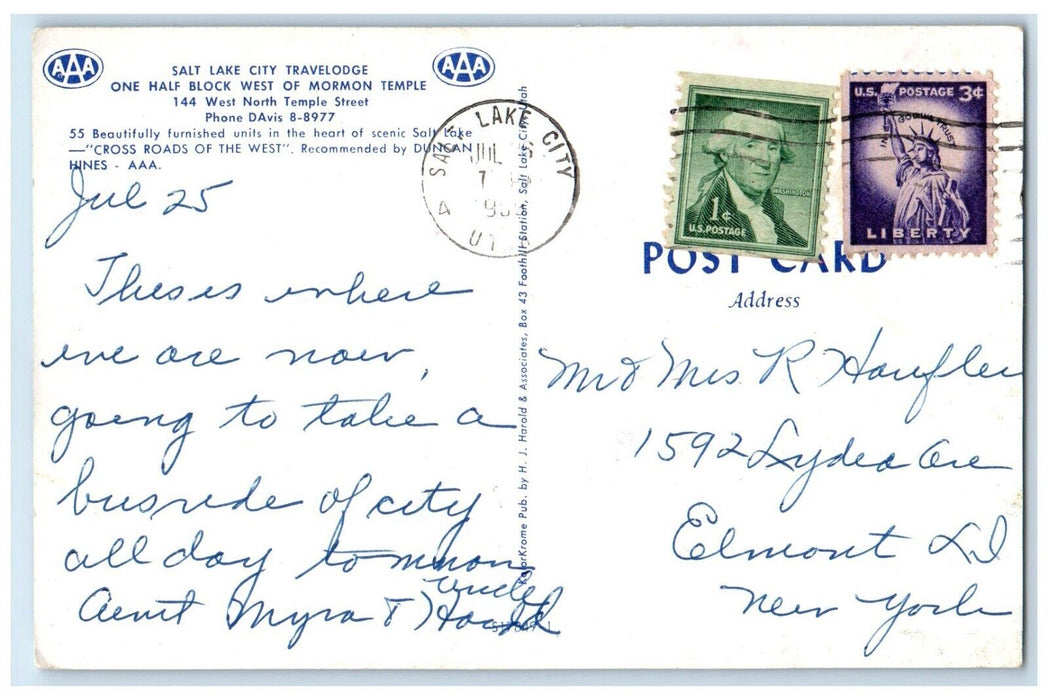 AAA
AAA
SALT LAKE CITY TRAVELODGE
ONE HALF BLOCK WEST OF MORMON TEMPLE
144 West North Temple Street
Phone DAvis 8-8977
55 Beautifully furnished units in the heart of scenic Salt Lake
—"CROSS ROADS OF THE WEST". Recommended by DUNCAN
HINES - AAA.
Jul 25
Thisis where
we are now,
going to take a
busride of city
all day tommorow
Aunt Myra & Uncle
KolorKrome Pub. by H. J. Harold & Associates, Box 43 Foothill Station, Salt Lake City, Utah
SALT LAKE CITY
JUL
U.S. POSTAGE 3¢
IN GOD WE TRUST
LIBERTY
WASHINGTON
1¢
U.S. POSTAGE
POST CARD
Address
Mr & Mrs. R Haufler
1592 Lydea Ave
Elmont LI
New York